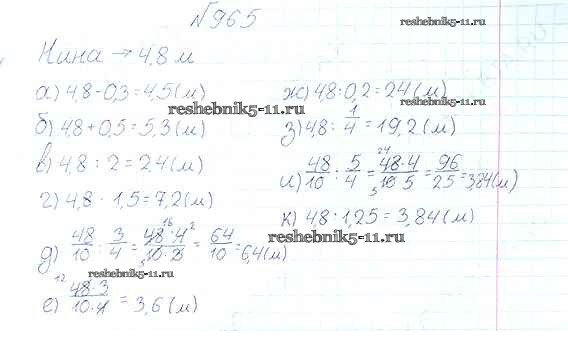 №965
reshebnik5-11.ru
Нина → 4,8 м
а) 4,8-0,3=4,5(м)
б) 4,8+0,5=5,3(м)
reshebnik5-11.ru
в) 4,8 : 2=2,4(м)
г) 4,8 · 1,5=7,2(м)
д) 48/10 : 3/4 = 48·4/10·3 = 64/10 = 6,4(м)
reshebnik5-11.ru
е) 48·3/10·4 = 3,6(м)
ж) 4,8:0,2=24(м)
reshebnik5-11.ru
з) 4,8 : 1/4 = 19,2(м)
и) 48/10 : 5/4 = 48·4/10·5 = 96/25 = 3,84(м)
к) 4,8 : 1,25 = 3,84(м)
reshebnik5-11.ru